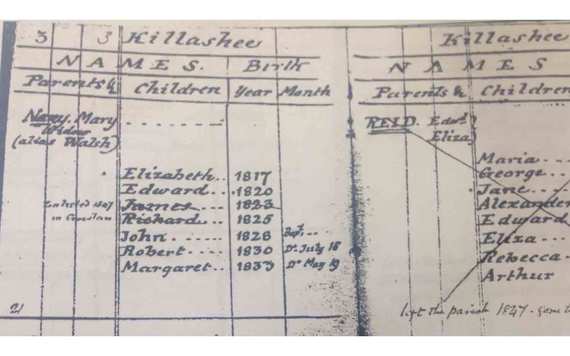 3 3 Killashee
NAMES. Birth
Parents & Children Year Month
Nary. Mary
Widow
(alias Walsh)
Elizabeth 1817
Edward 1820
James 1823
Enlisted 1847
in
Richard 1825
John 1828 Bapt.
Robert 1830 Do. July 18
Margaret 1833 Do May 19
21
Killashee
NAMES
Parents & Children
REID. Edwd
Eliza
Maria
George
Jane
Alexander
Edward
Eliza
Rebecca
Arthur
left the parish 1847 - gone